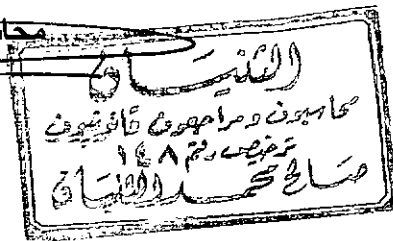 محا
الثنيان
محاسبون ومراجعون قانونيون
ترخيص رقم ١٤٨
صالح محمد الثنيان